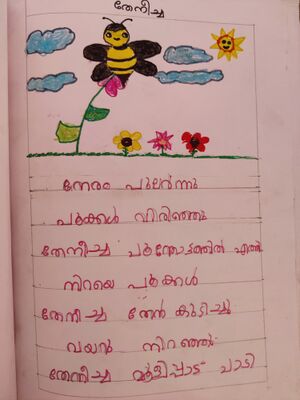 തേനീച്ച
നേരം പുലർന്നു
പൂക്കൾ വിരിഞ്ഞു
തേനീച്ച പൂന്തോട്ടത്തിൽ എത്തി
നിറയെ പൂക്കൾ
തേനീച്ച തേൻ കുടിച്ചു
വയറു നിറഞ്ഞു
തേനീച്ച മൂളിപ്പാട്ട് പാടി